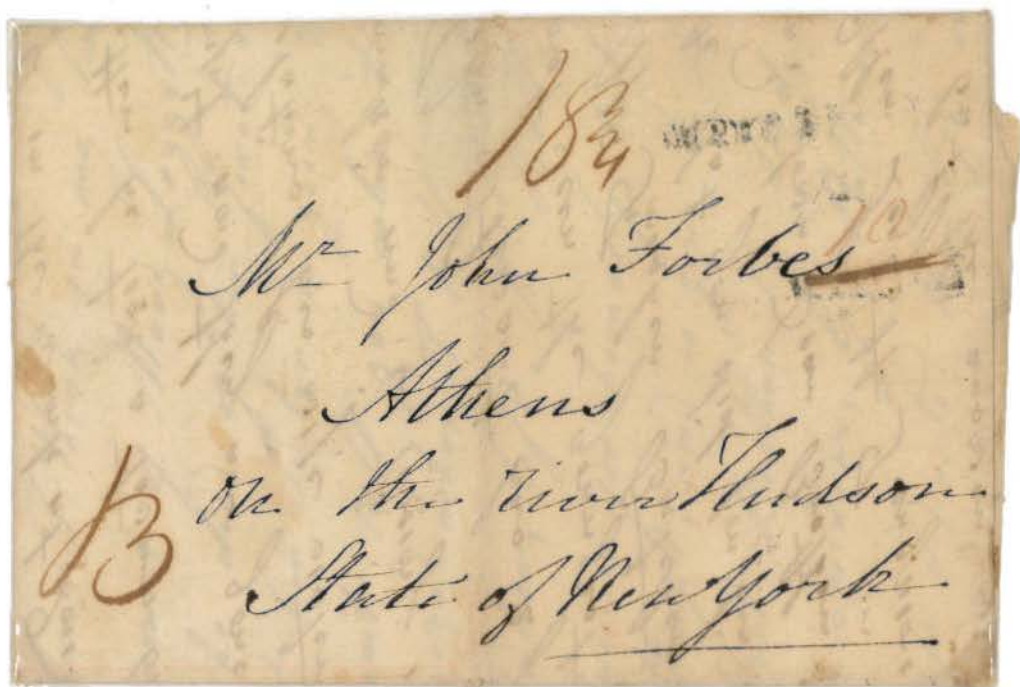 18¾
Mr John Forbes
Athens
on the river Hudson
State of New York
B